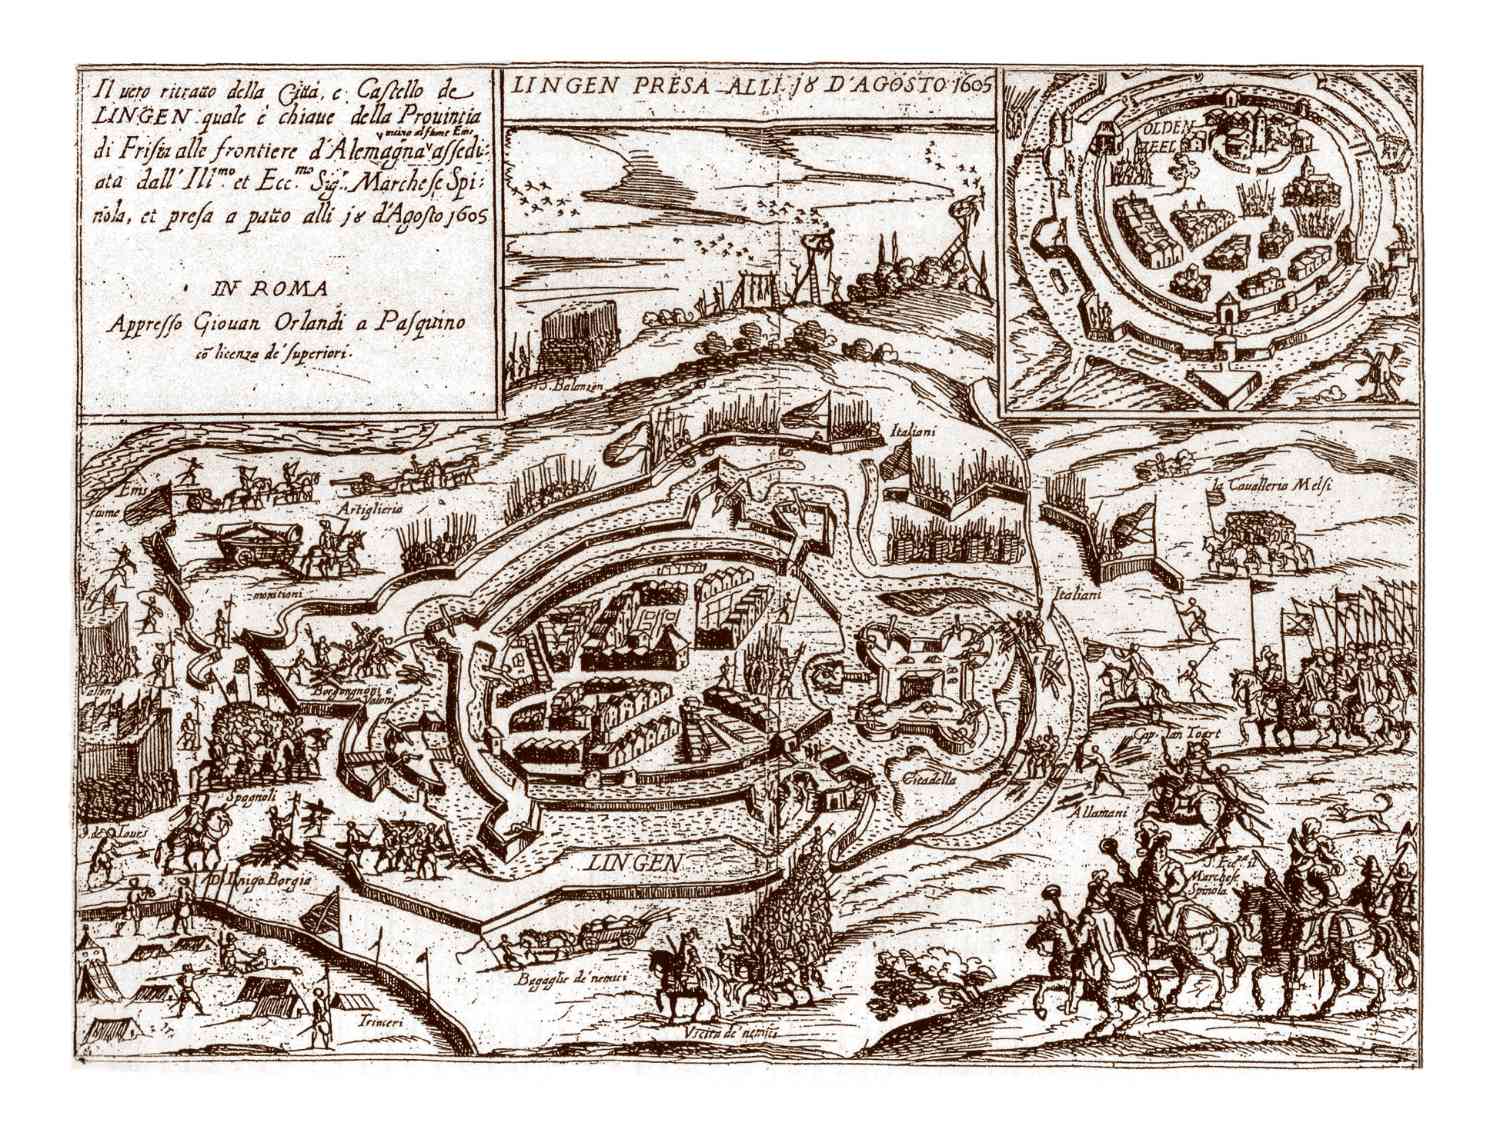 Il uero ritratto della Città, e Castello de
LINGEN quale è chiaue della Prouintia
uicino al fiume Ems
di Frisia alle frontiere d'Alemagna assedi-
ata dall' Ill.mo et Ecc.mo Sig.r Marchese Spi:
nola, et presa a patto alli 18 d'Agosto 1605
IN ROMA
Appresso Giouan Orlandi a Pasquino
cõ licenza de' superiori.
LINGEN PRESA ALLI 18 D'AGOSTO 1605
OLDEN
ZEEL
Balanzon
Italiani
la Caualleria Melsi
Ems
fiume
Artiglieria
monitioni
Italiani
Valloni
Borgongnoni e
Valoni
Cap. Ian Toart
Spagnoli
Citadella
Allamani
D. Inigo Borgia
LINGEN
S. Ecc.za il
Marchese
Spinola
Bagaglie de' nemici
Trinceri
Vscita de' nemici